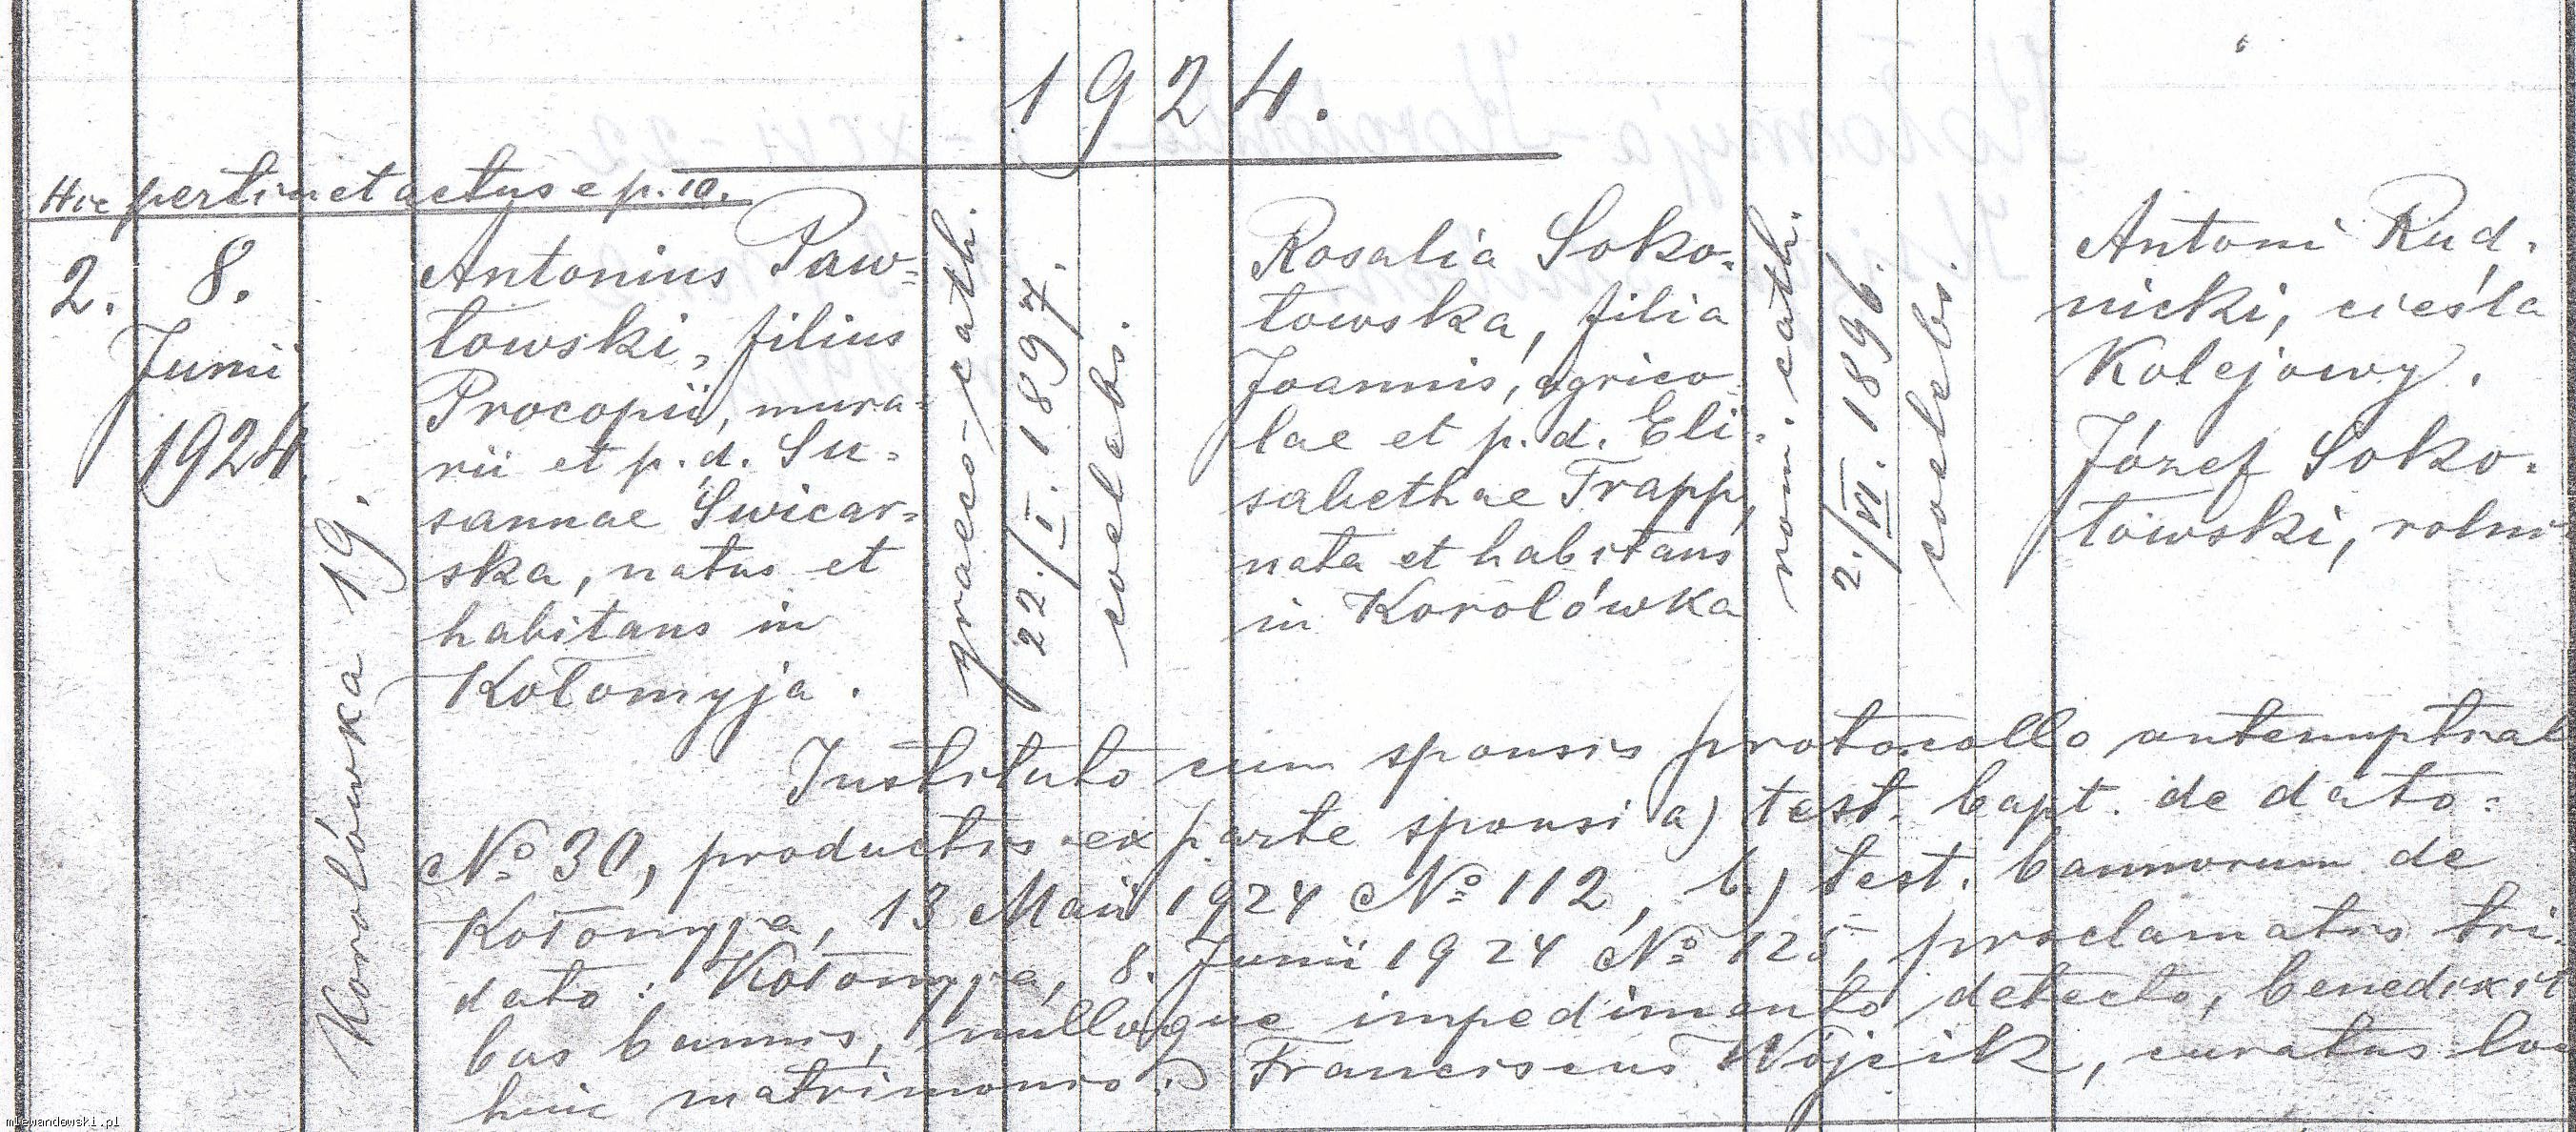 1924.
Hic pertinet actus e p. 10.
2.
8.
Junii
1924.
Korolówka 19.
Antonius Paw=
łowski, filius
Procopii, mura=
rii et p. d. Su=
sannae Swicar=
ska, natus et
habitans in
Kołomyja.
graeco-cath.
22./I. 1897.
coelebs.
Rosalia Soko=
łowska, filia
Joannis, agrico=
lae et p. d. Eli=
sabethae Trapp,
nata et habitans
in Korolówka
rom. cath.
2./VI. 1896.
coelebs.
Antoni Rud.
nicki, cieśla
Kolejowy.
Józef Soko.
łowski, rolni
Instituto cum sponsis protocollo antenuptial
№ 30, productis ex parte sponsi a) test. bapt. de dato:
Kołomyja, 13 Maii 1924 № 112, b.) test. bannorum de
dato: Kołomyja, 8. Junii 1924 № 125, proclamatis tri.
bus bannis, nulloque impedimento detecto, benedixit
huic matrimonio: Franciscus Wójcik, curatus loc
mlewandowski.pl